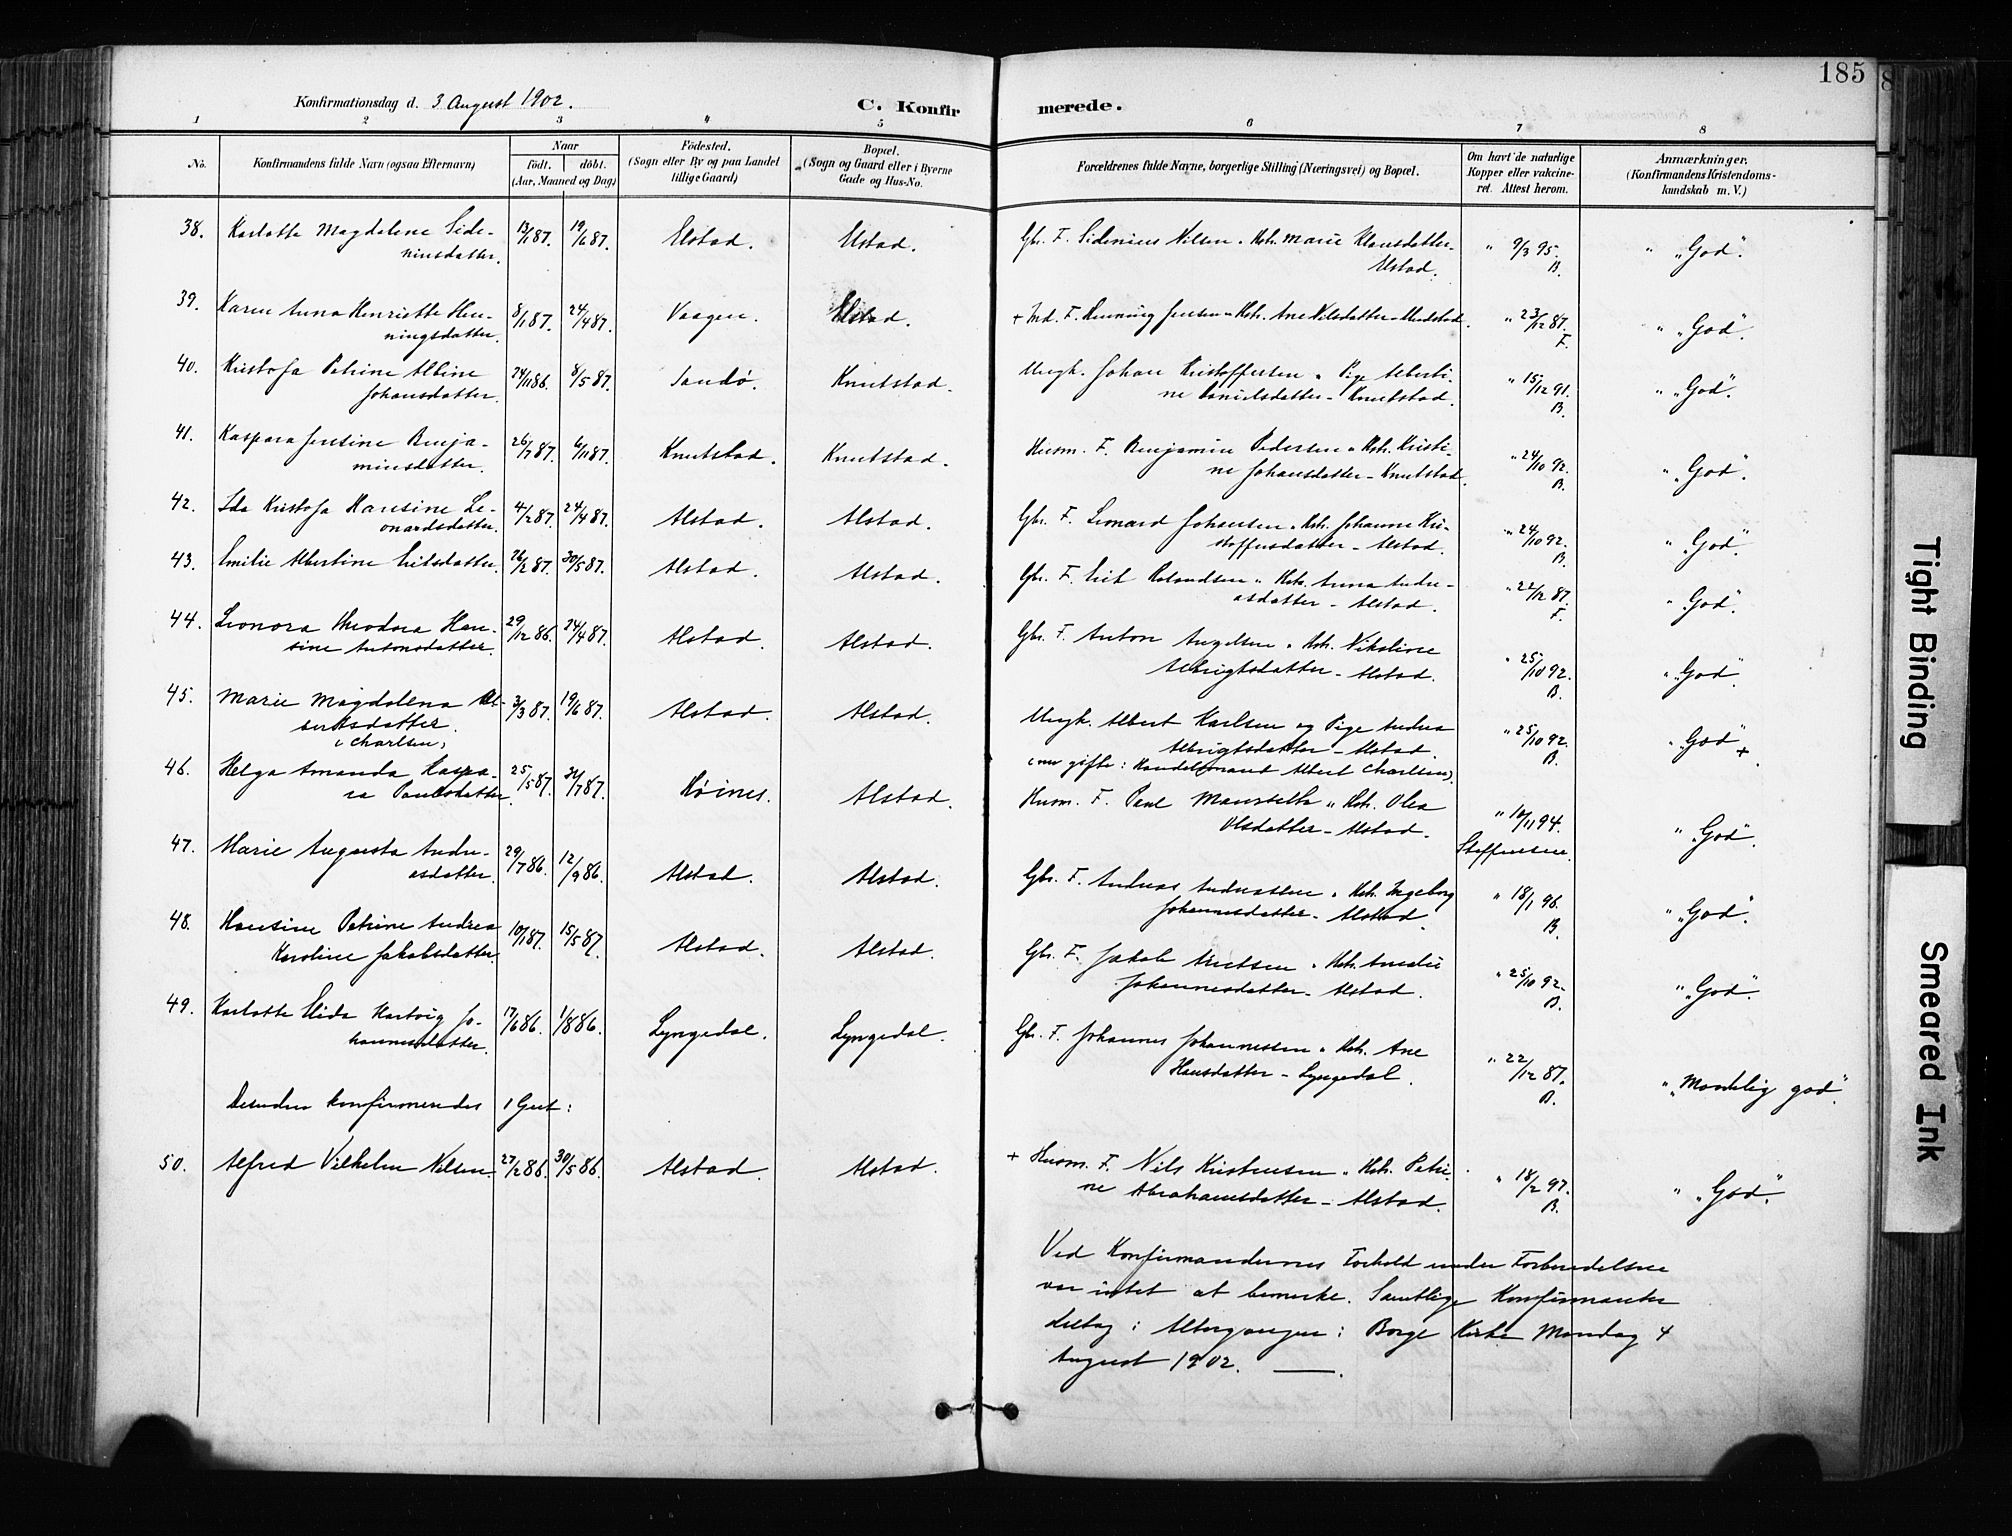 185
Konfirmationsdag d. 3 August 1902.
C. Konfirmerede.
1 2 3 4 5 6 7 8
No.
Konfirmandens fulde Navn (ogsaa Efternavn)
Naar
født. døbt.
(Aar, Maaned og Dag)
Fødested.
(Sogn eller By og paa Landet
tillige Gaard)
Bopæl.
(Sogn og Gaard eller i Byerne
Gade og Hus-No.
Forældrenes fulde Navne, borgerlige Stilling (Næringsvei) og Bopæl.
Om havt de naturlige
Kopper eller vakcine-
ret. Attest herom.
Anmærkninger.
(Konfirmandens Kristendoms-
kundskab m. V.)
38. Karlotte Magdalene Side- 13/1 87. 19/6 87. Alstad. Alstad. Gbr. F. Sidenius Nilsen " Kstr. Marie Klausdatter " 9/3 95. " "God".
niusdatter. Alstad. B.
39. Karen Anna Henriette Hen- 8/1 87. 24/4 87. Vaagen. Alstad. + Ind. F. Henning Jensen " Kstr. Ane Nilsdatter - " 23/12 87. " "God".
ningsdatter. F.
40. Kristofa Petrine Albine 24/11 86. 8/5 87. Sandö. Knutstad. Ungk. Johan Kristoffersen " Pige Alberti- " 15/12 91. " "God".
Johansdatter. ne Danielsdatter - Knutstad. B.
41. Kaspara Jensine Benja- 26/7 87. 6/11 87. Knutstad. Knutstad. Husm. F. Benjamin Pedersen " Kstr. Kristi- " 24/10 92. " "God".
minsdatter. ne Johansdatter - Knutstad. B.
42. Ida Kristofa Hansine Le- 4/2 87. 24/4 87. Alstad. Alstad. Gbr. F. Leonard Johansen " Kstr. Johanna Kri- " 24/10 92. " "God".
onardsdatter. stoffersdatter - Alstad. B.
43. Emilie Albertine Eritsdatter. 26/2 87. 30/5 87. Alstad. Alstad. Gbr. F. Erit Rolandsen " Kstr. Anna Andre- " 22/12 87. " "God".
asdatter - Alstad. F.
44. Leonora Theodora Han- 29/12 86. 24/4 87. Alstad. Alstad. Gbr. F. Anton Angelsen " Kstr. Nikoline " 25/10 92. " "God".
sine Antonsdatter. Albrigtsdatter - Alstad. B.
45. Marie Magdalena Al- 3/3 87. 19/6 87. Alstad. Alstad. Ungk. Albert Karlsen og Pige Andrea " 25/10 92. " "God" +
bertsdatter. Albrigtsdatter - Alstad. B.
(Charlsen) (nu gifte: Handelsmand Albert Charlsen).
46. Helga Amanda Kaspa- 25/5 87. 31/7 87. Höines. Alstad. Husm. F. Paul " Kstr. Olea " 10/11 94. " "God".
ra Paulsdatter. Olsdatter - Alstad. Steffensen.
47. Marie Augusta Andre- 29/7 86. 12/9 86. Alstad. Alstad. Gbr. F. Andreas Andreassen " Kstr. Ingeborg " 18/1 96. " "God".
asdatter. Johannesdatter - Alstad. B.
48. Hansine Petrine Andrea 10/1 87. 15/5 87. Alstad. Alstad. Gbr. F. Jakob " Kstr. Amalie " 25/10 92. " "God".
Karoline Jakobsdatter. Johannesdatter - Alstad. B.
49. Karlotte Elida Hartvig Jo- 17/6 86. 1/8 86. Lyngedal. Lyngedal. Gbr. F. Johannes Johannessen " Kstr. Ane " 22/12 87. " "Maadelig god".
hannesdatter. Hansdatter - Lyngedal. B.
Desuden konfirmeredes 1 Gut:
50. Alfred Vilhelm Nilsen. 27/2 86. 30/5 86. Alstad. Alstad. + Husm. F. Nils Kristensen " Kstr. Petri- " 18/2 97. " "God".
ne Abrahamsdatter - Alstad. B.
Ved Konfirmandernes Forhold under Forberedelsen
var intet at bemerke. Samtlige Konfirmanter
deltog i Altergangen i Borge Kirke Mandag 4
August 1902.
Tight Binding
Smeared Ink